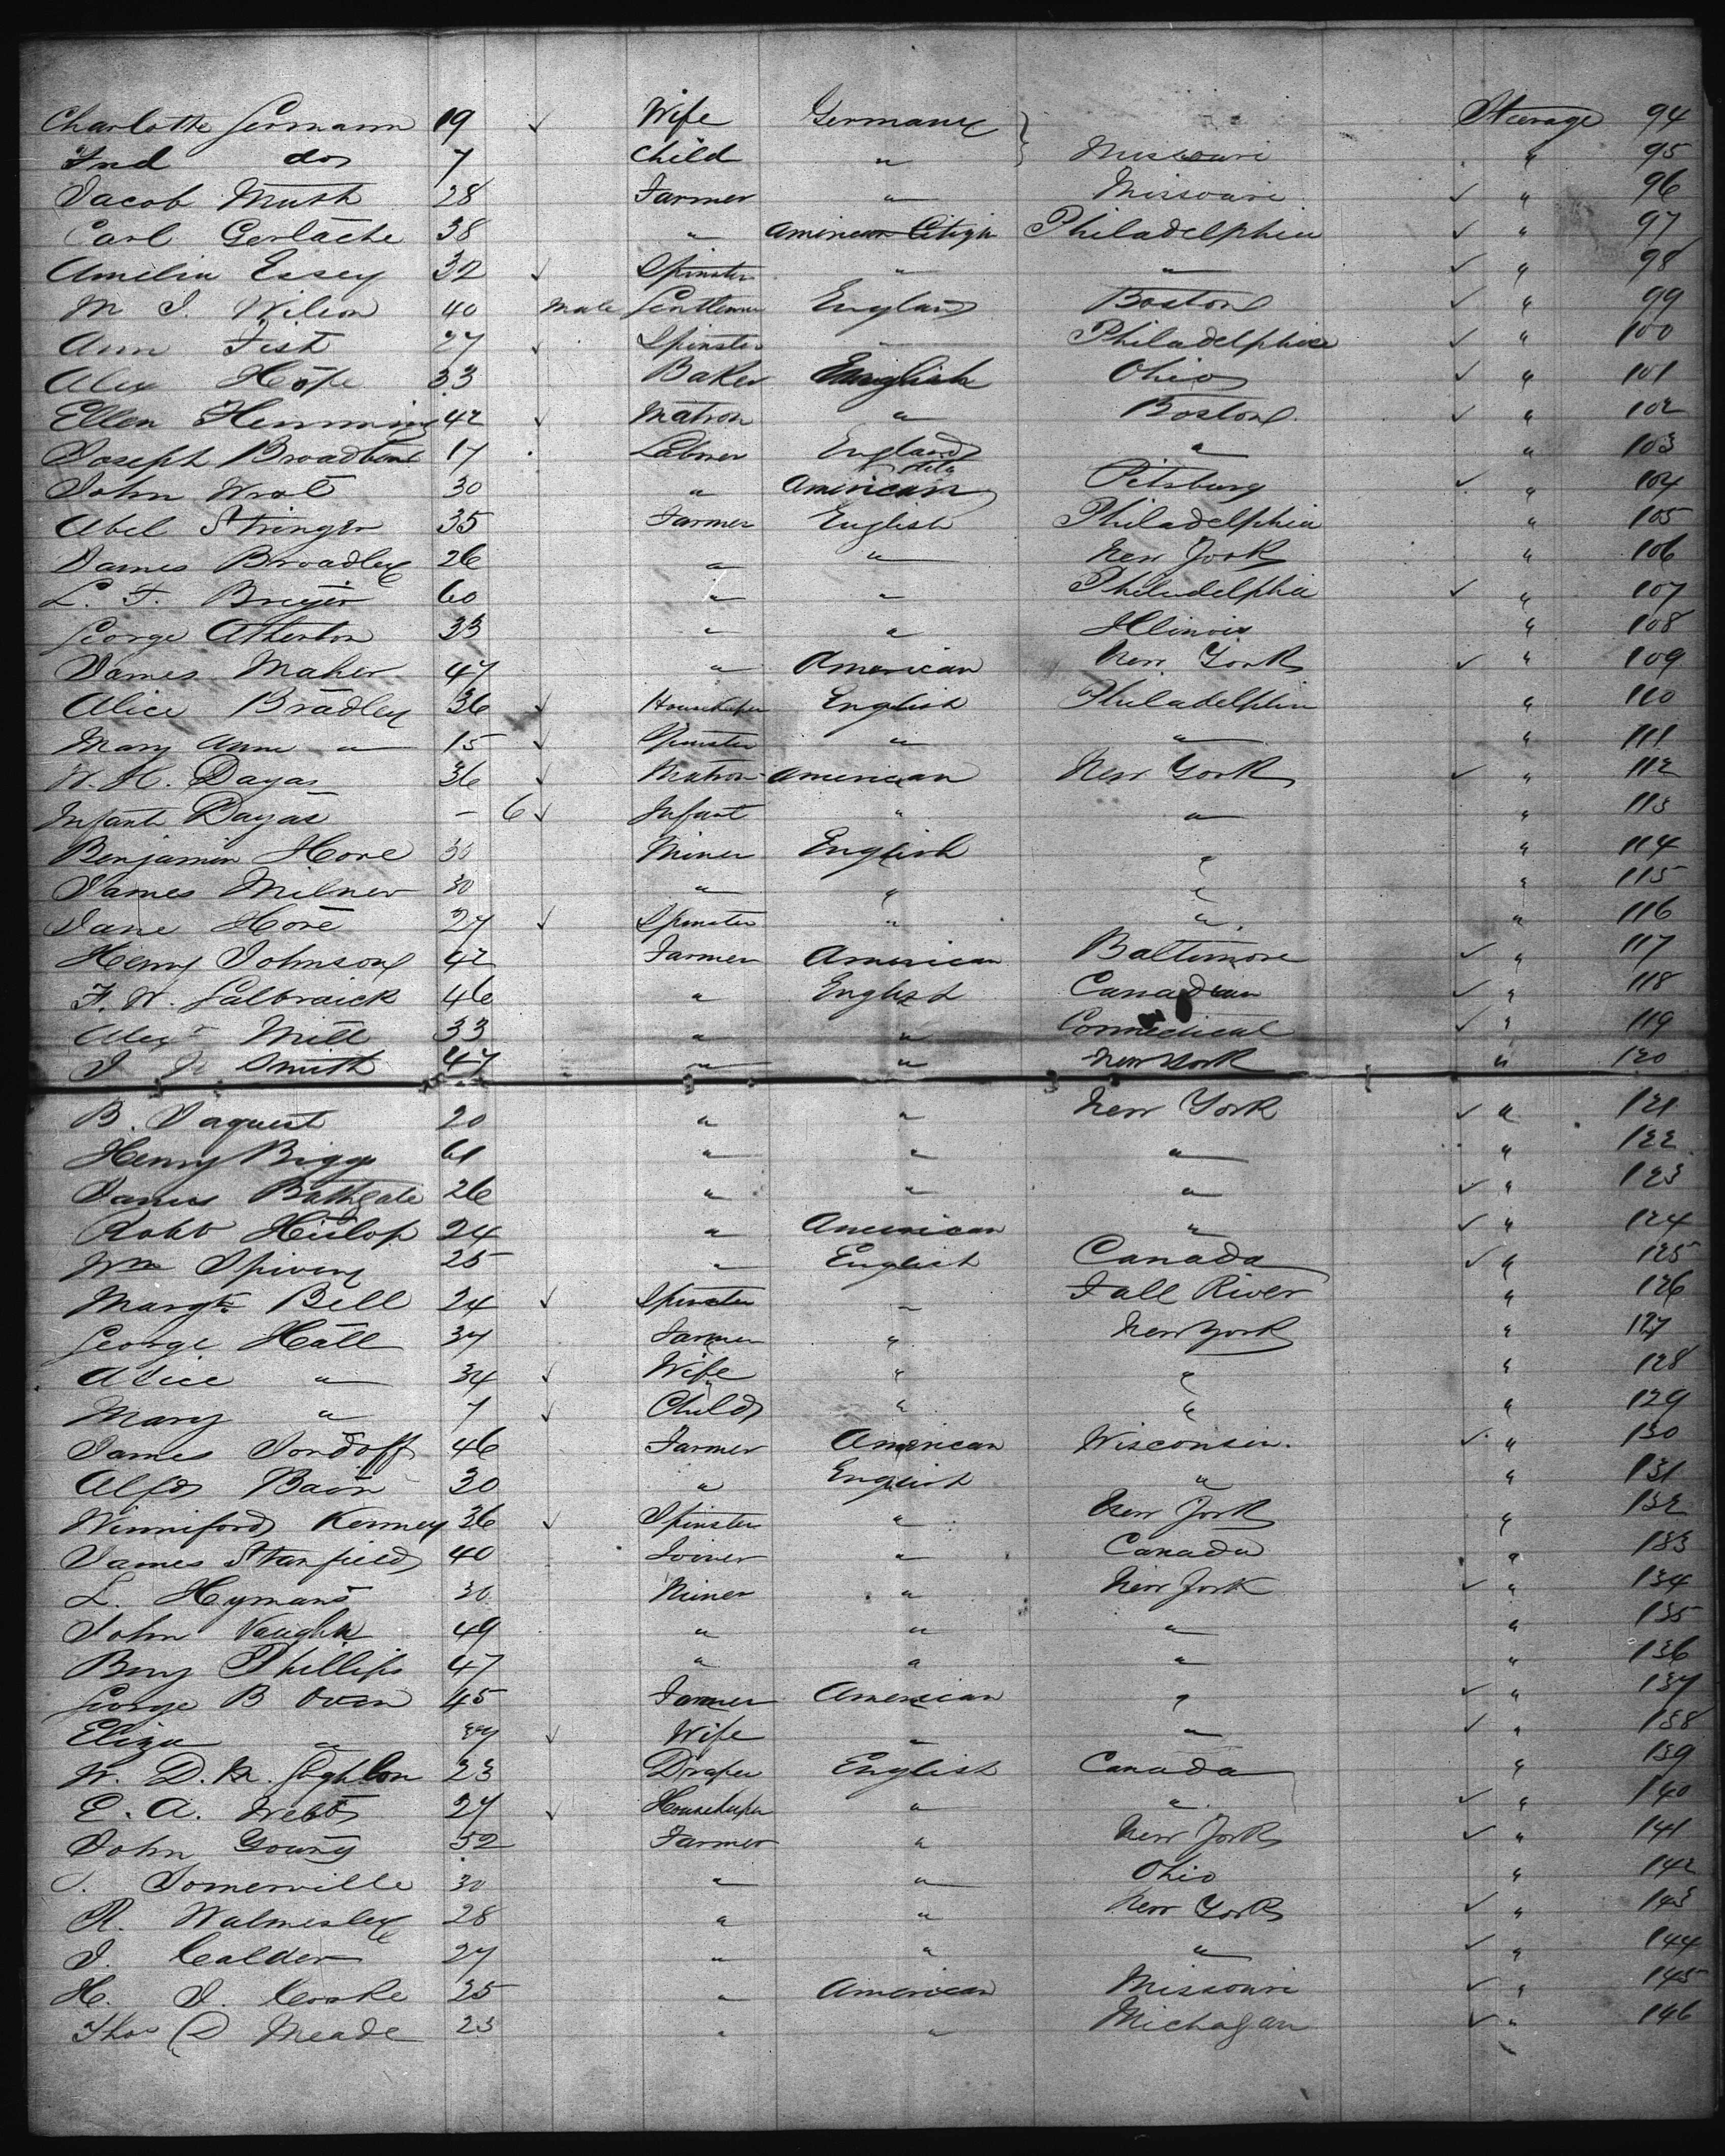 Charlotte Germann 19 ✓ Wife Germany } Steerage 94
Fred do 7 Child " Missouri " 95
Jacob Muth 28 Farmer " Missouri ✓ " 96
Carl Gerlache 38 " American Citizn Philadelphia ✓ " 97
Amelia Essey 32 ✓ Spinster " " ✓ " 98
M J. Wilson 40 male Gentleman England Boston ✓ " 99
Ann Fish 27 ✓ Spinster " Philadelphia ✓ " 100
Alex Hope 33 Baker English Ohio ✓ " 101
Ellen Hemming 42 ✓ Matron " Boston ✓ " 102
Joseph Broadbent 17 Labner England " " 103
John Wral 30 " American Pitsburg ✓ " 104
Abel Stringer 35 Farmer English Philadelphia " 105
James Broadley 26 " " New York " 106
L. F. Breyer 60 " " Philadelphia ✓ " 107
George Atherton 33 " " Illinois " 108
James Maher 47 " American New York ✓ " 109
Alice Bradley 36 ✓ Housekeper English Philadelphia " 110
Mary Ann " 15 ✓ Spinster " " " 111
W. H. Dayas 36 ✓ Matron American New York ✓ " 112
Infant Dayas - 6 ✓ Infant " " " 113
Benjamin Hore 30 Miner English " " 114
James Milner 30 " " " " 115
Jane Hore 27 ✓ Spinster " " " 116
Henry Johnson 42 Farmer American Baltimore ✓ " 117
F. W. Galbraick 46 " English Canadian ✓ " 118
Alexr Mill 33 " " Connecticut ✓ " 119
J Smith 47 " " New York " 120
B. Jaquest 20 " " New York ✓ " 121
Henry Bigg 61 " " " " 122
James Bathgate 26 " " " ✓ " 123
Robt Hislop 24 " American " ✓ " 124
Wm Spivey 25 " English Canada ✓ " 125
Margt Bell 24 ✓ Spinster " Fall River " 126
George Hall 34 Farmer " New York " 127
Alice " 34 ✓ Wife " " " 128
Mary " 7 ✓ Child " " " 129
James Jondoff 46 Farmer American Wisconsin. ✓ " 130
Alfd Baon 30 " English " " 131
Winniford Kenney 36 ✓ Spinster " New York " 132
James Stanfield 40 Joiner " Canada " 133
L. Hymans 30 Miner " New York ✓ " 134
John Vaughn 49 " " " " 135
Benj Phillips 47 " " " " 136
George B Oven 45 Farmer American " ✓ " 137
Eliza " ✓ Wife " " ✓ " 138
W. D. M. Leighton 23 Draper English Canada " 139
E. A. Webb 27 ✓ Housekeper " " ✓ " 140
John Young 52 Farmer " New York ✓ " 141
Somerville 30 " " Ohio " 142
R. Walmesley 28 " " New York ✓ " 143
J. Calder 27 " " " ✓ " 144
H. J. Cooke 25 " American Missouri ✓ " 145
Thos D Meade 23 " " Michagan ✓ " 146